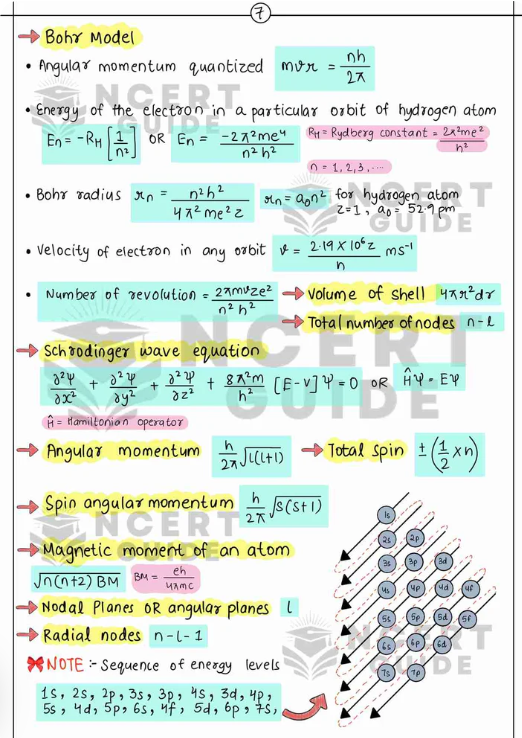 7
Bohr Model
• Angular momentum quantized mvr = nh/2π
• Energy of the electron in a particular orbit of hydrogen atom
En = -RH [1/n²] OR En = -2π²me⁴/n²h²
RH = Rydberg constant = 2π²me²/h²
n = 1, 2, 3, ...
• Bohr radius rn = n²h²/4π²me²z rn = a₀n² for hydrogen atom
z=1, a₀ = 52.9 pm
• Velocity of electron in any orbit v = 2.19 X 10⁶z/n ms⁻¹
• Number of revolution = 2πmvze²/n²h²
→ Volume of shell 4πr²dr
→ Total number of nodes n-l
→ Schrodinger wave equation
∂²ψ/∂x² + ∂²ψ/∂y² + ∂²ψ/∂z² + 8π²m/h² [E-V]ψ = 0 OR Ĥψ = Eψ
Ĥ = Hamiltonian operator
→ Angular momentum h/2π √l(l+1) → Total spin ± (1/2 × n)
→ Spin angular momentum h/2π √s(s+1)
→ Magnetic moment of an atom
√n(n+2) BM BM = eh/4πmc
→ Nodal Planes OR angular planes l
→ Radial nodes n-l-1
NOTE :- Sequence of energy levels
1s, 2s, 2p, 3s, 3p, 4s, 3d, 4p,
5s, 4d, 5p, 6s, 4f, 5d, 6p, 7s,
1s
2s 2p
3s 3p 3d
4s 4p 4d 4f
5s 5p 5d 5f
6s 6p 6d
7s 7p
NCERT
GUIDE
NCERT
GUIDE
NCERT
GUIDE
NCERT
GUIDE
NCERT
GUIDE